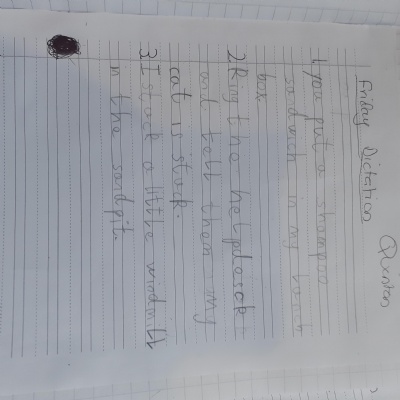 Quinton
Friday Dictation
1. you put a shampoo
sandwich in my lunch
box.
2. Ring the helpdesk
and tell them my
cat is stuck.
3. I stuck a little windmill
in the sandpit.